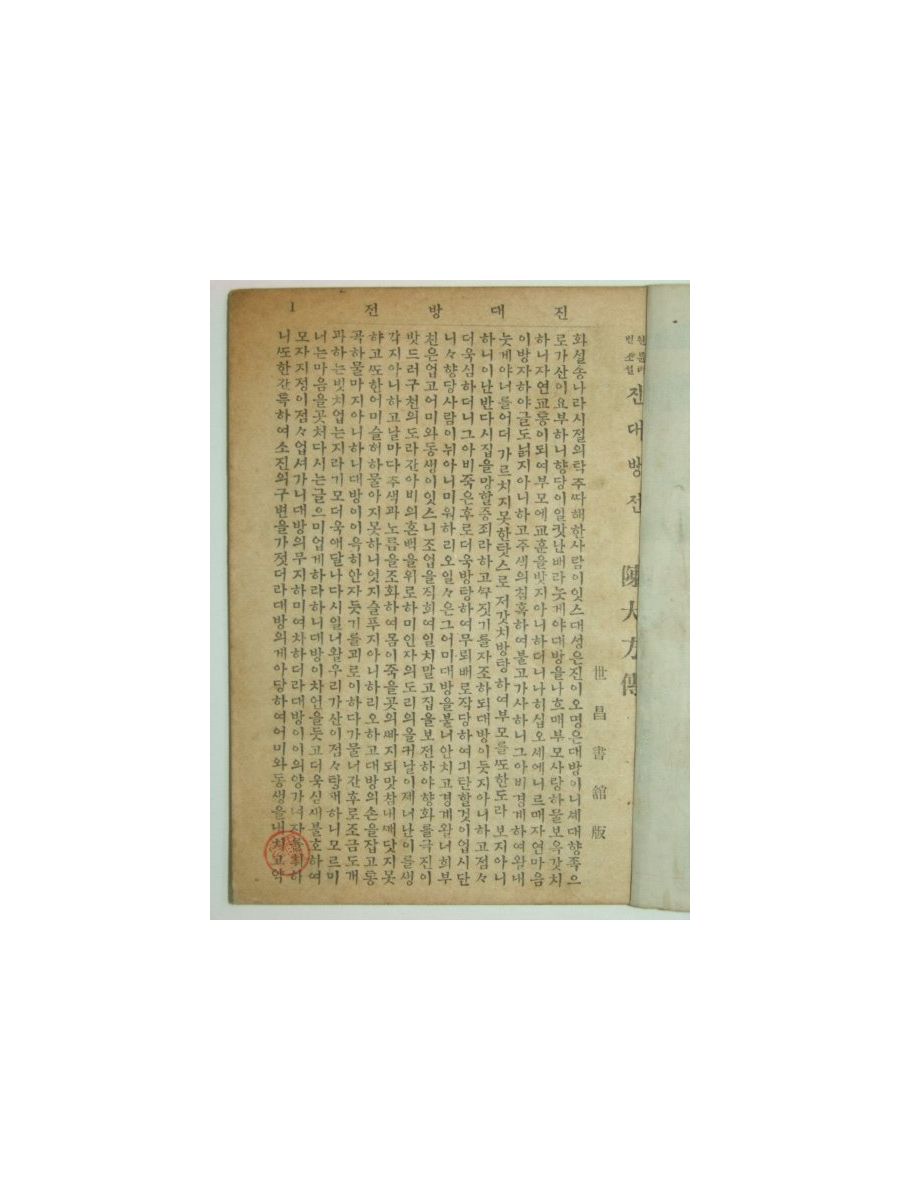 진대방전 1
진대방전 陳大方傳
世昌書舘版
화셜송나라시졀의탁주따해한사람이잇스대셩은진이오명은대방이니셰대향족으
로가산이요부하니향당이일캇난배라늣게야대방을나흐매부모사랑하물보옥갓치
하니자연교룡이되여부모에교훈을밧지아니하더니나히십오셰에니르매자연마음
이방자하야글도넑지아니하고주색의침혹하여불고가사하니그아비경계하여왈내
늣게야너를어더가르치지못한탓스로저갓치방탕하여부모를또한도라보지아니
하니이난반다시집을망할증죄라하고꾸짓기를자조하되대방이듯지아니하고점々
더욱심하더니그아비죽은후로더욱방탕하여무뢰배로작당하여긔탄할것이업시단
니々향당사람이뉘아니미워하리오일々은그어미대방을불너안치고경계왈너희부
친은업고어미와동생이잇스니조업을직희여일치말고집을보전하야향화를극진이
밧드러구천의도라간아비의혼백을위로하미인자의도리의올커날이제너난이를생
각지아니하고날마다주색과노름을조화하여몸이죽을곳의빠지되맛참내깨닷지못
하고또한어미슬허하물아지못하니엇지슬푸지아니하리오하고대방의손을잡고통
곡하물마지아니하니대방이이윽히안자듯기를괴로이하다가물너간후로조금도개
과하는빗치업는지라기모더욱애달나다시일너왈우리가산이점々탕패하니모르미
너는마음을곳처다시는글으미업게하라하니대방이차언을듯고더욱심새불호하여
모자지정이점々업셔가니대방의무지하미여차하더라대방이이의양가녀자를취하
니또한간특하여소진의구변을가젓더라대방의게아당하여어미와동생을내치고약